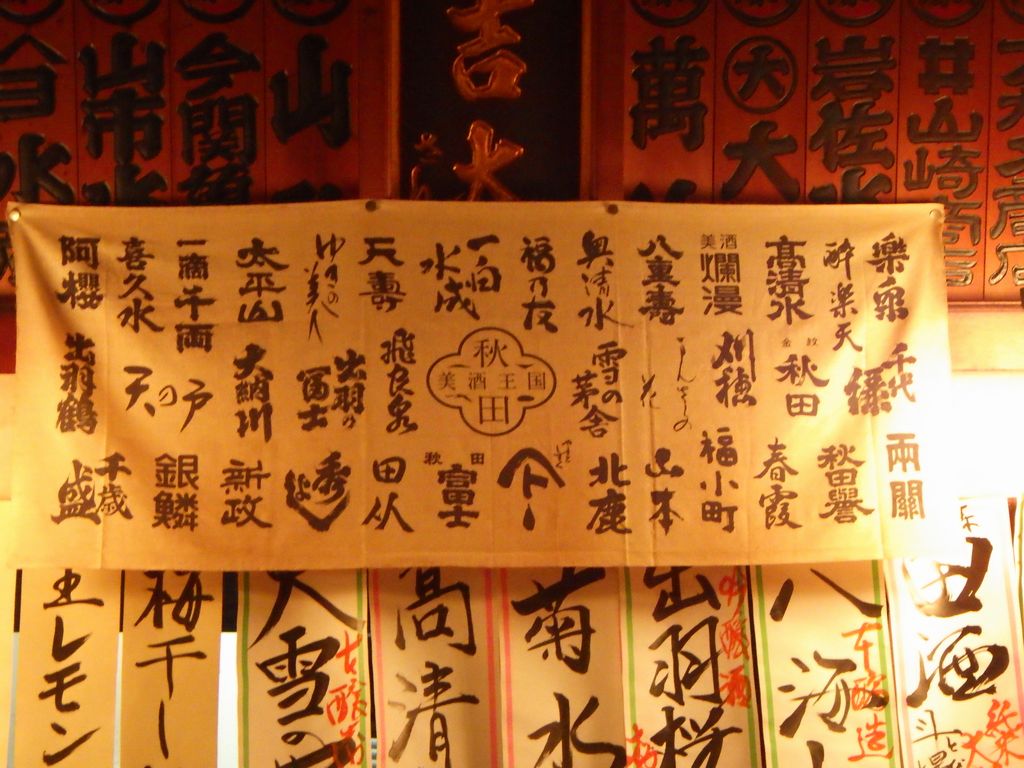 吉水
萬
大 大
岩佐水
井山崎商店
山
今関
山市水
水
樂泉
千代緑
兩關
酔楽天
金紋
秋田
秋田譽
高清水
春霞
美酒
爛漫
刈穂
福小町
八重壽
まんさくの花
山本
奥清水
雪の茅舎
北鹿
福乃友
一白水成
秋田
美酒王国
秋田
富士
天壽
飛良泉
田从
ゆきの美人
出羽の冨士
秀よし
太平山
大納川
新政
一滴千両
天の戸
銀鱗
喜久水
千歳盛
阿櫻
出羽鶴
田酒
八海山
本醸造
出羽桜
吟醸酒
菊水
高清
大雪の
梅干し
生レモン